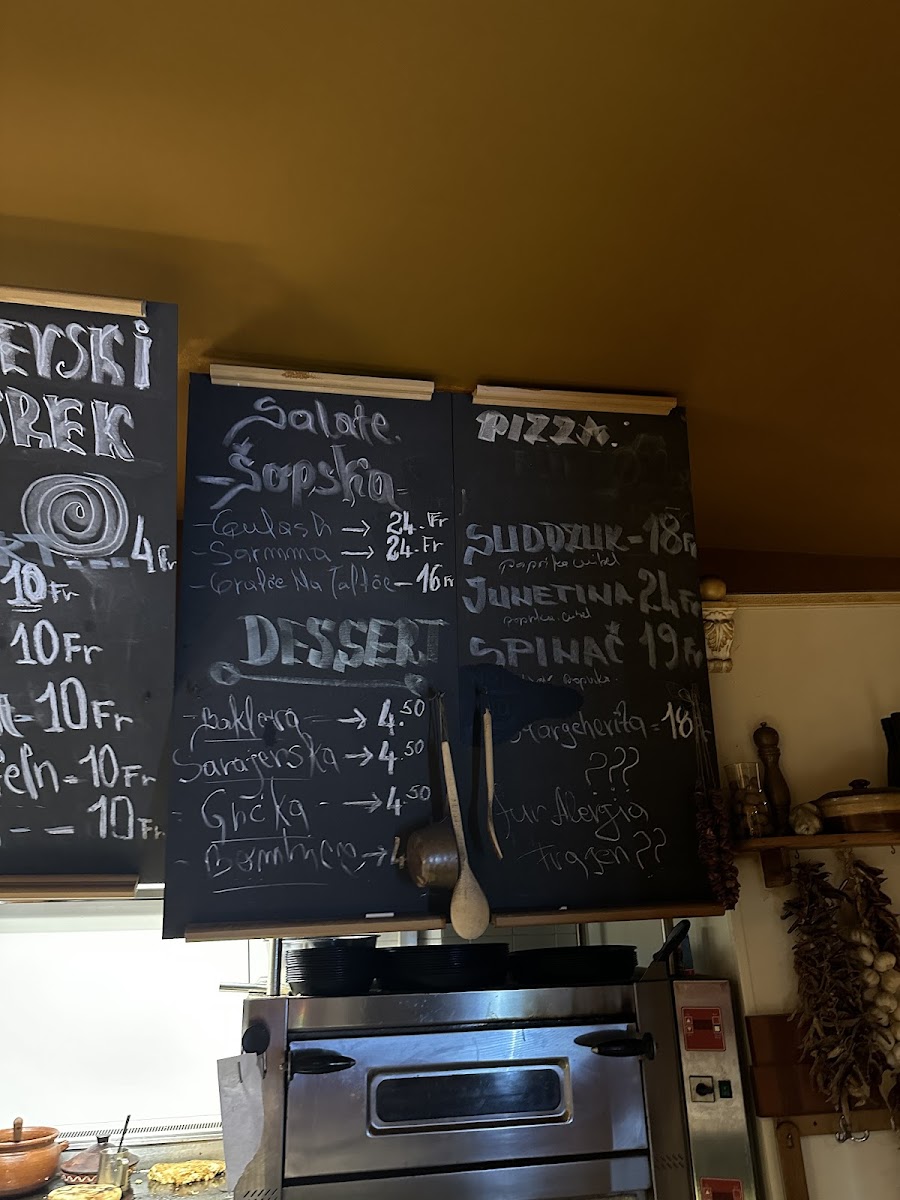 EVSKI
REK
4 Fr
10 Fr
10 Fr
10 Fr
eln - 10 Fr
- - 10 Fr
Salate.
- Šopska
- Gulash → 24.- Fr
- Sarmma → 24.- Fr
- Gravče Na Tavče - 16 Fr
DESSERT
- Baklava → 4.50
Sarajevska → 4.50
- Grčka -- → 4.50
→ 4
PIZZA.
SUDDZUK - 18 Fr
paprika
JUNETINA 24 Fr
SPINAČ 19 Fr
Margeherita = 18
???
für Alergia
Fragen??